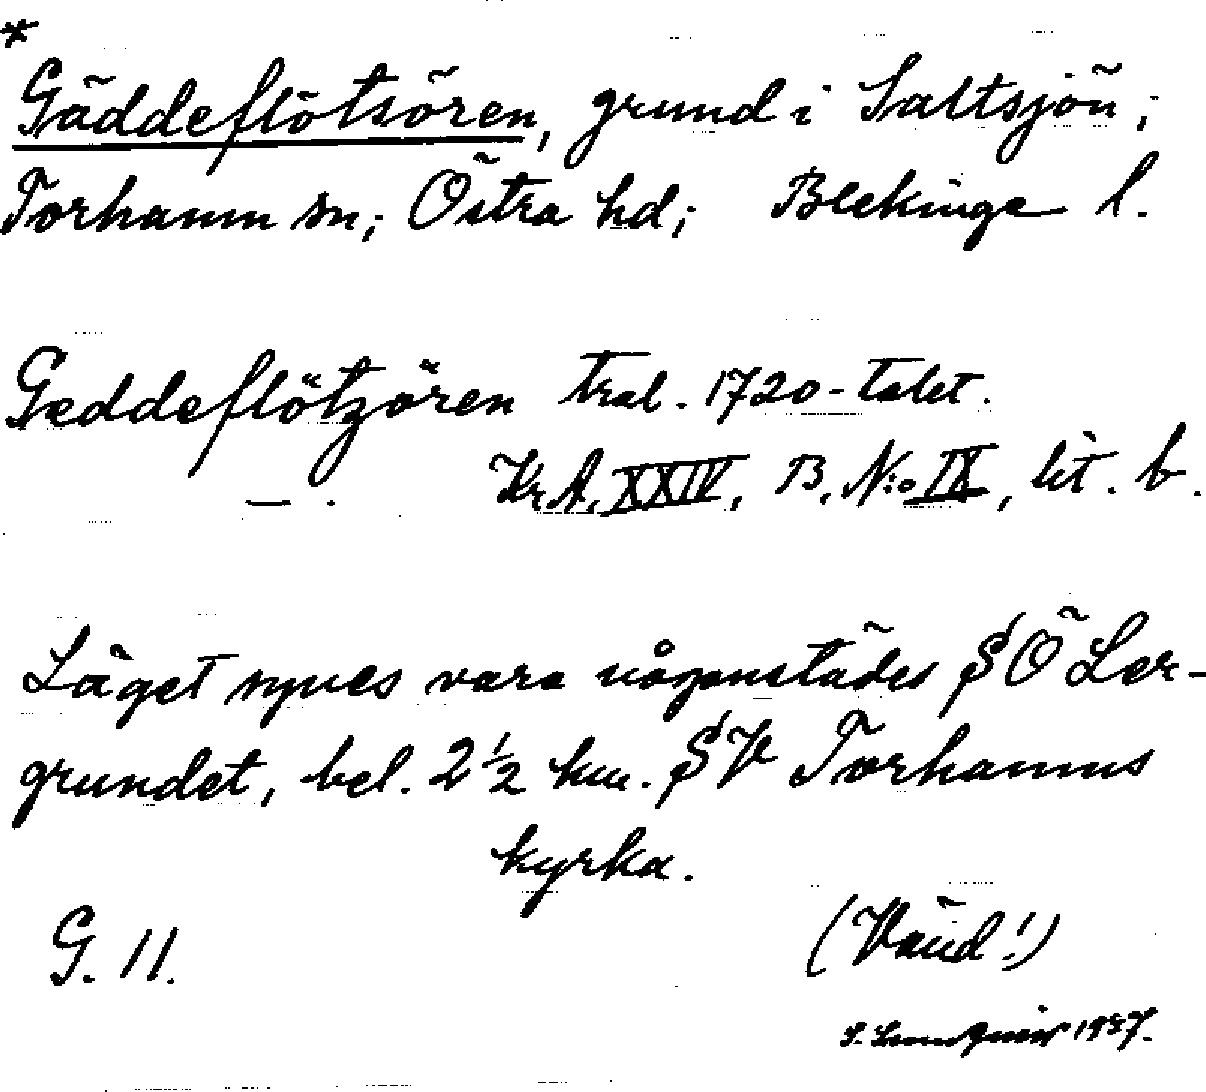 *
Gäddeflötsören, grund i Saltsjön;
Torhamn sn; Östra hd; Blekinge l.
Geddeflötzören tral. 1720-talet.
— . KrA, XXIV, B, N:o IX, lit. b.
Läget synes vara någonstädes SÖ Ler-
grundet, bel. 2 1/2 km. SV Torhamns
kyrka.
G. 11. (Vänd!)
S. Lundqvist 1937.